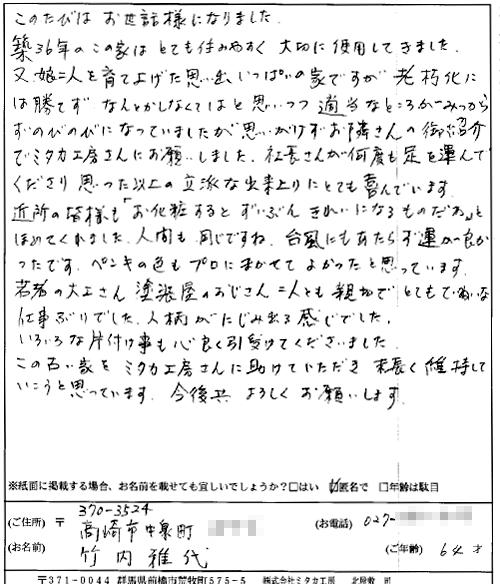 このたびは お世話様になりました.
築36年のこの家は とても住みやすく 大切に使用してきました.
又 娘二人を育て上げた思い出いっぱいの家ですが 老朽化に
は勝てず なんとかしなくてはと思いつつ 適当なところがみつから
ずのびのびになっていましたが 思いがけずお隣さんの御紹介
でミタカ工房さんにお願いしました. 社長さんが何度も足を運んで
くださり 思った以上の立派な出来上りにとても喜んでいます.
近所の皆様も「お化粧すると ずいぶん きれいになるものだね」と
ほめてくれました. 人間も同じですね. 台風にもあたらず運が良か
ったです. ペンキの色もプロにまかせて よかったと思っています.
若者の大工さん 塗装屋のおじさん 二人とも親切で とてもていねいな
仕事ぶりでした. 人柄がにじみ出る感じでした.
いろいろな片付け事も心良く引受けてくださいました.
この古い家を ミタカ工房さんに助けていただき 末長く維持して
いこうと思っています. 今後共 よろしくお願いします.
※紙面に掲載する場合、お名前を載せても宜しいでしょうか?□はい ☑匿名で □年齢は駄目
370-3524
(ご住所) 〒 高崎市中泉町 (お電話) 027-
(お名前) 竹内雅代 (ご年齢) 64才
〒371-0044 群馬県前橋市荒牧町575-5 株式会社ミタカ工房